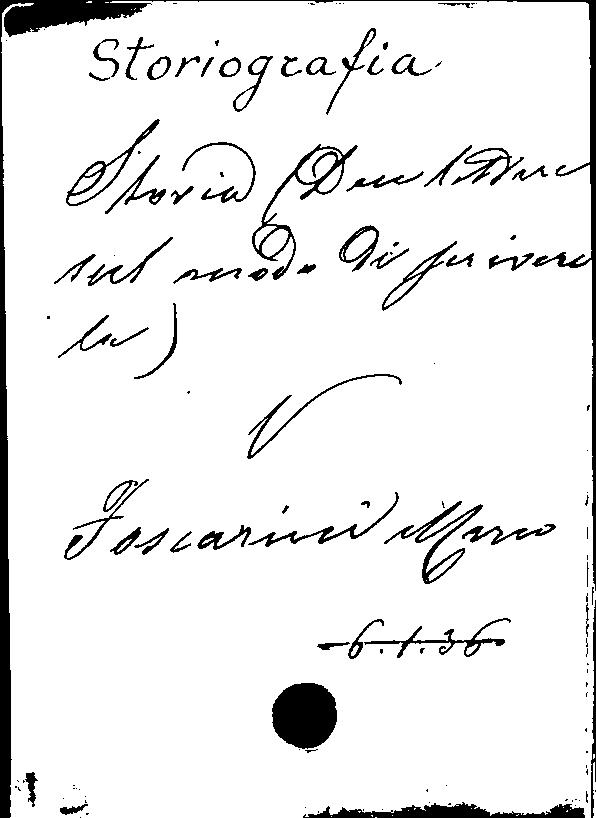 Storiografia
Storia (Due lettere
sul modo di scrivere
la)
V
Foscarini Marco
6.1.36